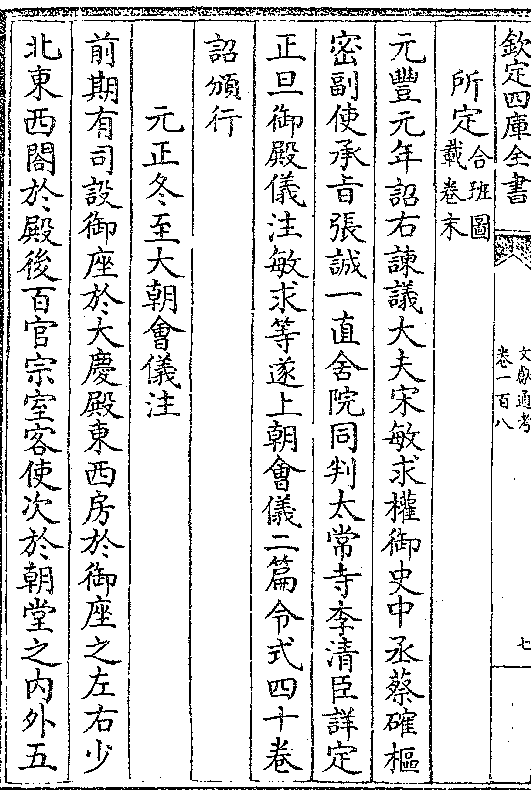 欽定四庫全書
文獻通考
卷一百八
七
所定合班圖
載卷末
元豐元年詔右諫議大夫宋敏求權御史中丞蔡確樞
密副使承旨張誠一直舍院同判太常寺李清臣詳定
正旦御殿儀注敏求等遂上朝會儀二篇令式四十卷
詔頒行
元正冬至大朝會儀注
前期有司設御座於大慶殿東西房於御座之左右少
北東西閤於殿後百官宗室客使次於朝堂之內外五